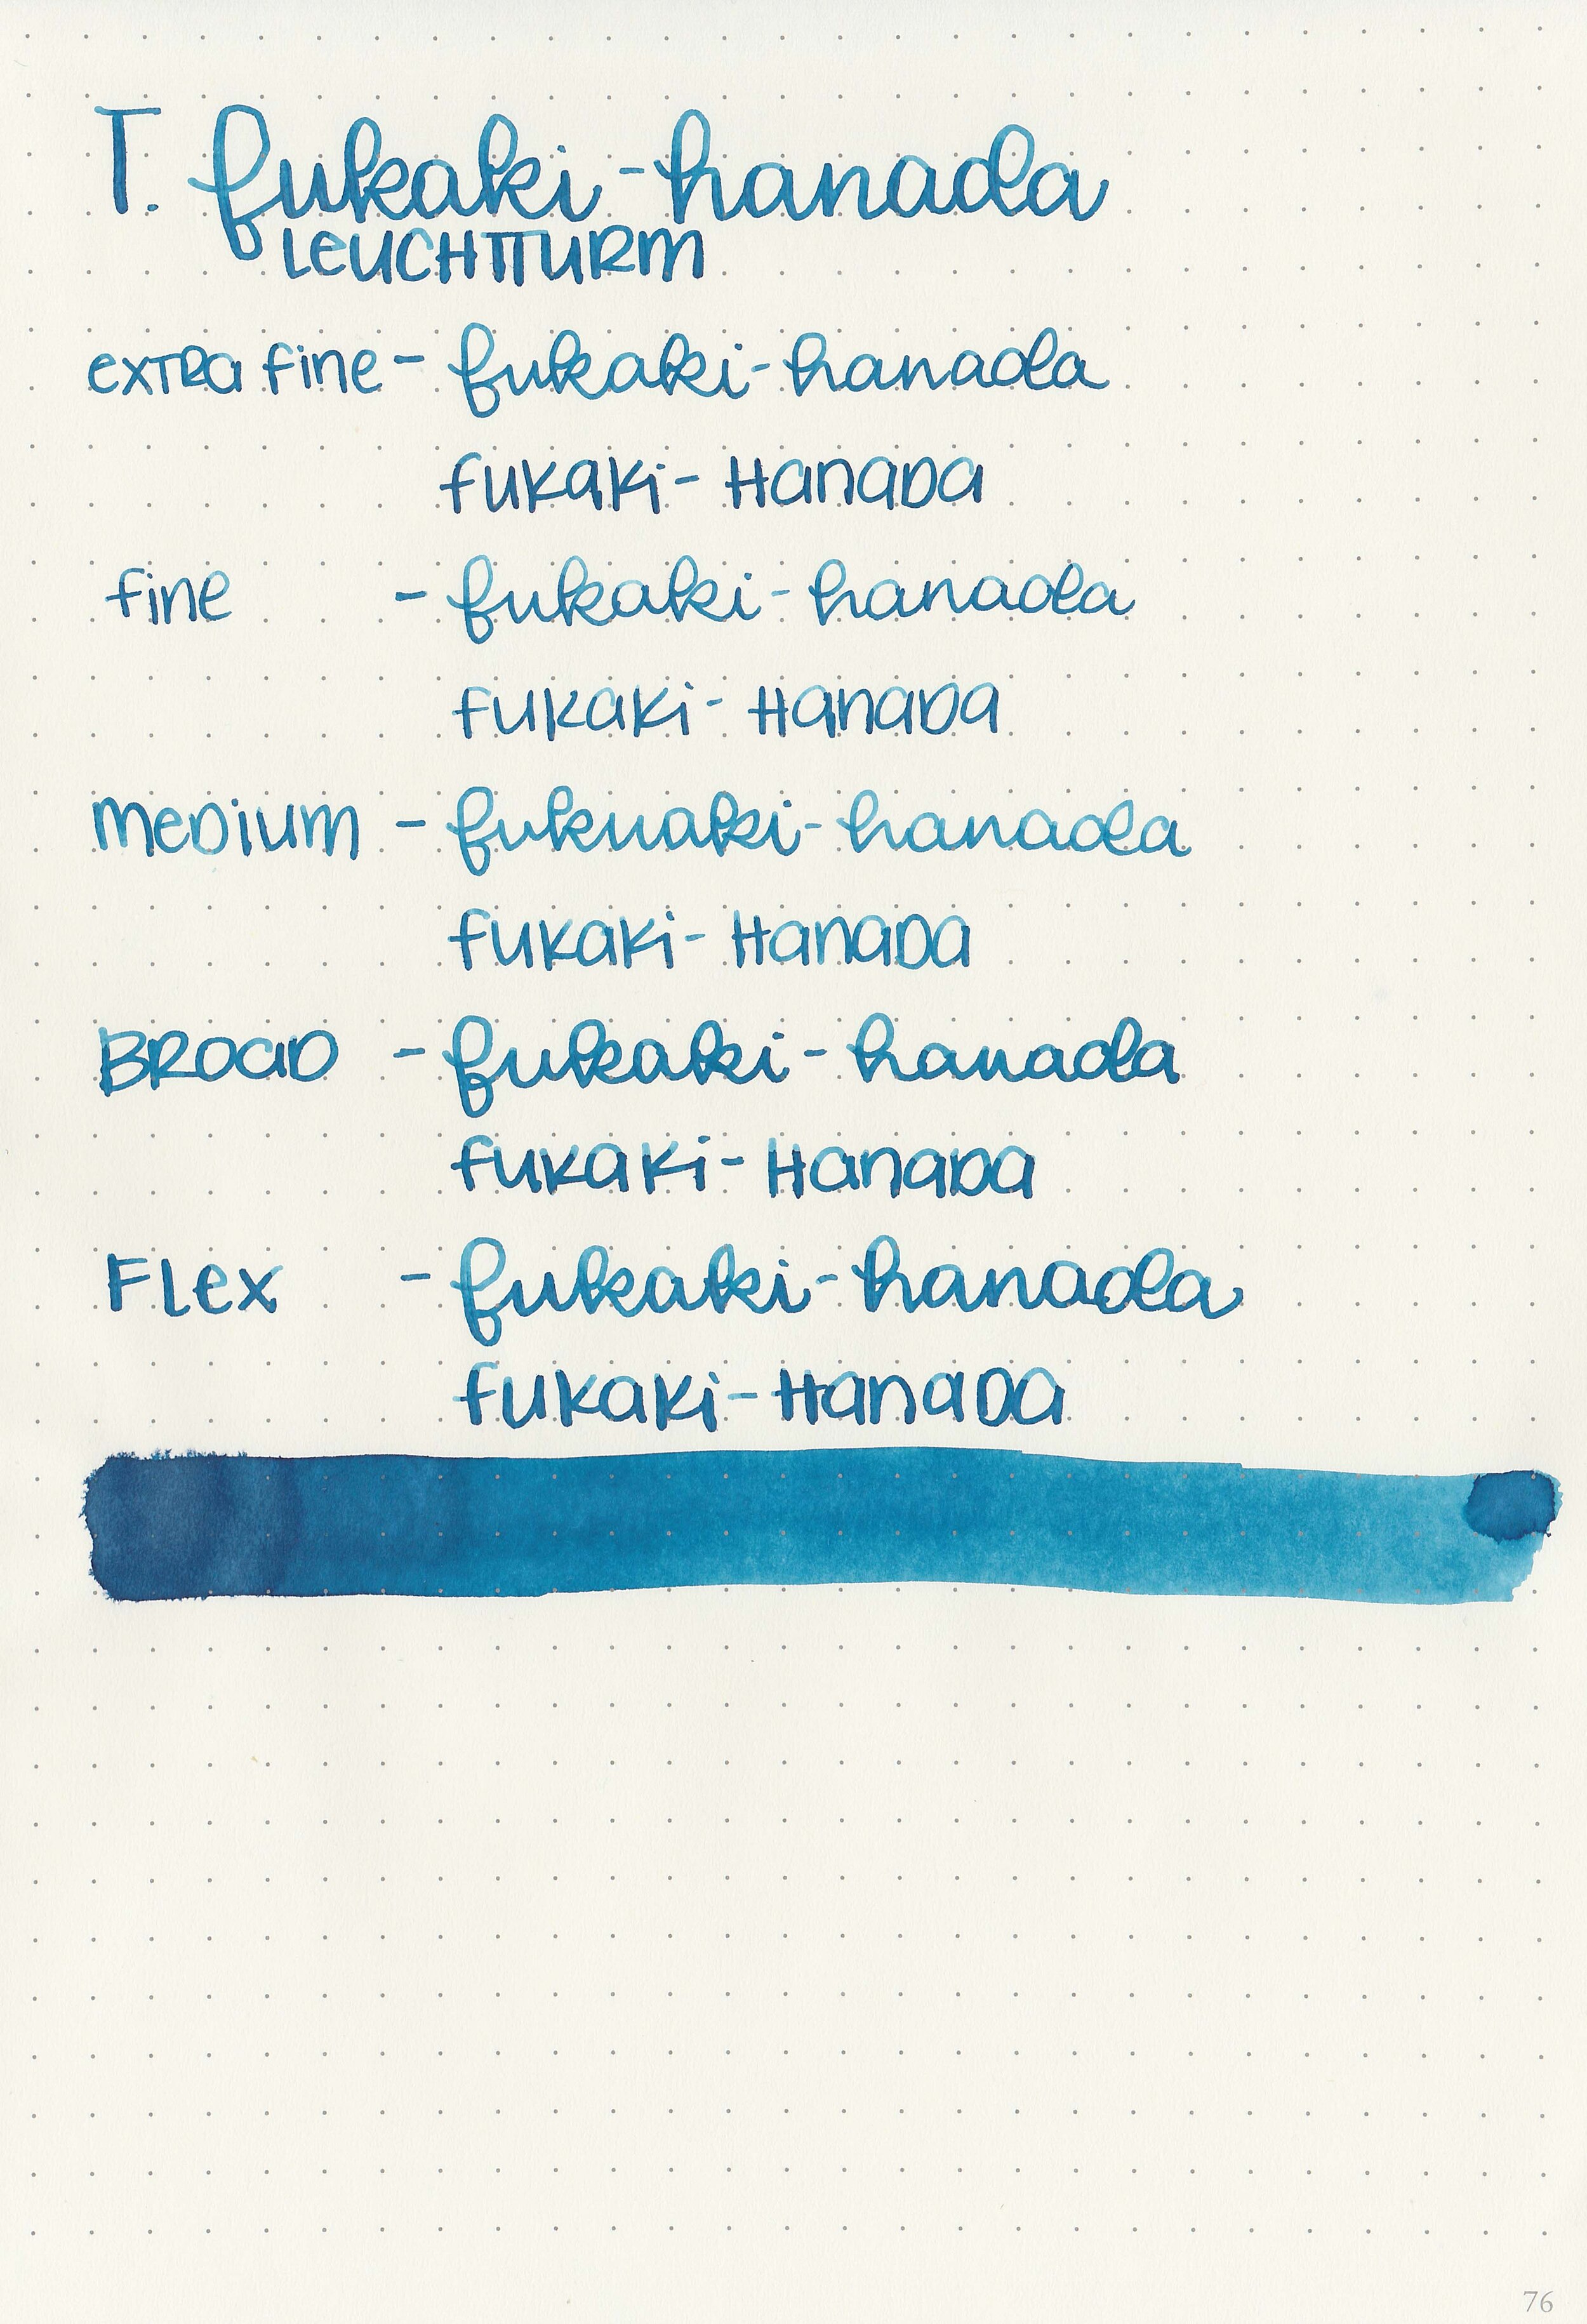 T. fukaki-hanada
LEUCHTTURM
extra fine - fukaki-hanada
fukaki-Hanada
fine - fukaki-hanada
fukaki-Hanada
medium - fukuaki-hanada
fukaki-Hanada
Broad - fukaki-hanada
fukaki-Hanada
Flex - fukaki-hanada
fukaki-Hanada
76